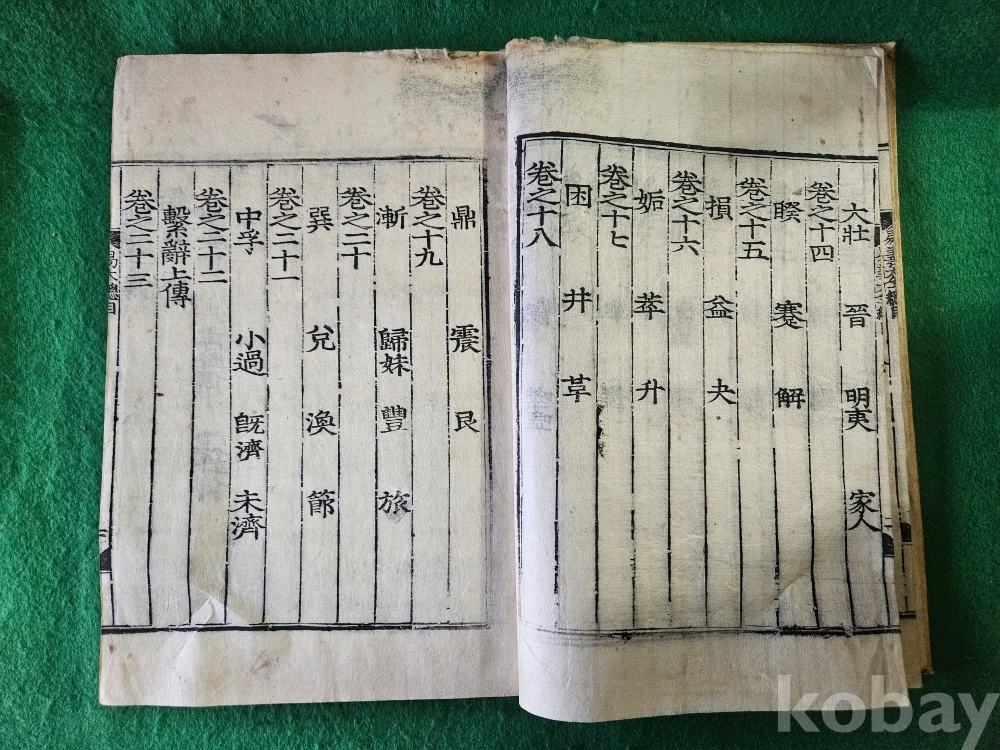 大壯 晉 明夷 家人
卷之十四
睽 蹇 解
卷之十五
損 益 夬
卷之十六
姤 萃 升
卷之十七
困 井 革
卷之十八
鼎 震 艮
卷之十九
漸 歸妹 豐 旅
卷之二十
巽 兌 渙 節
卷之二十一
中孚 小過 旣濟 未濟
卷之二十二
繫辭上傳
卷之二十三
kobay